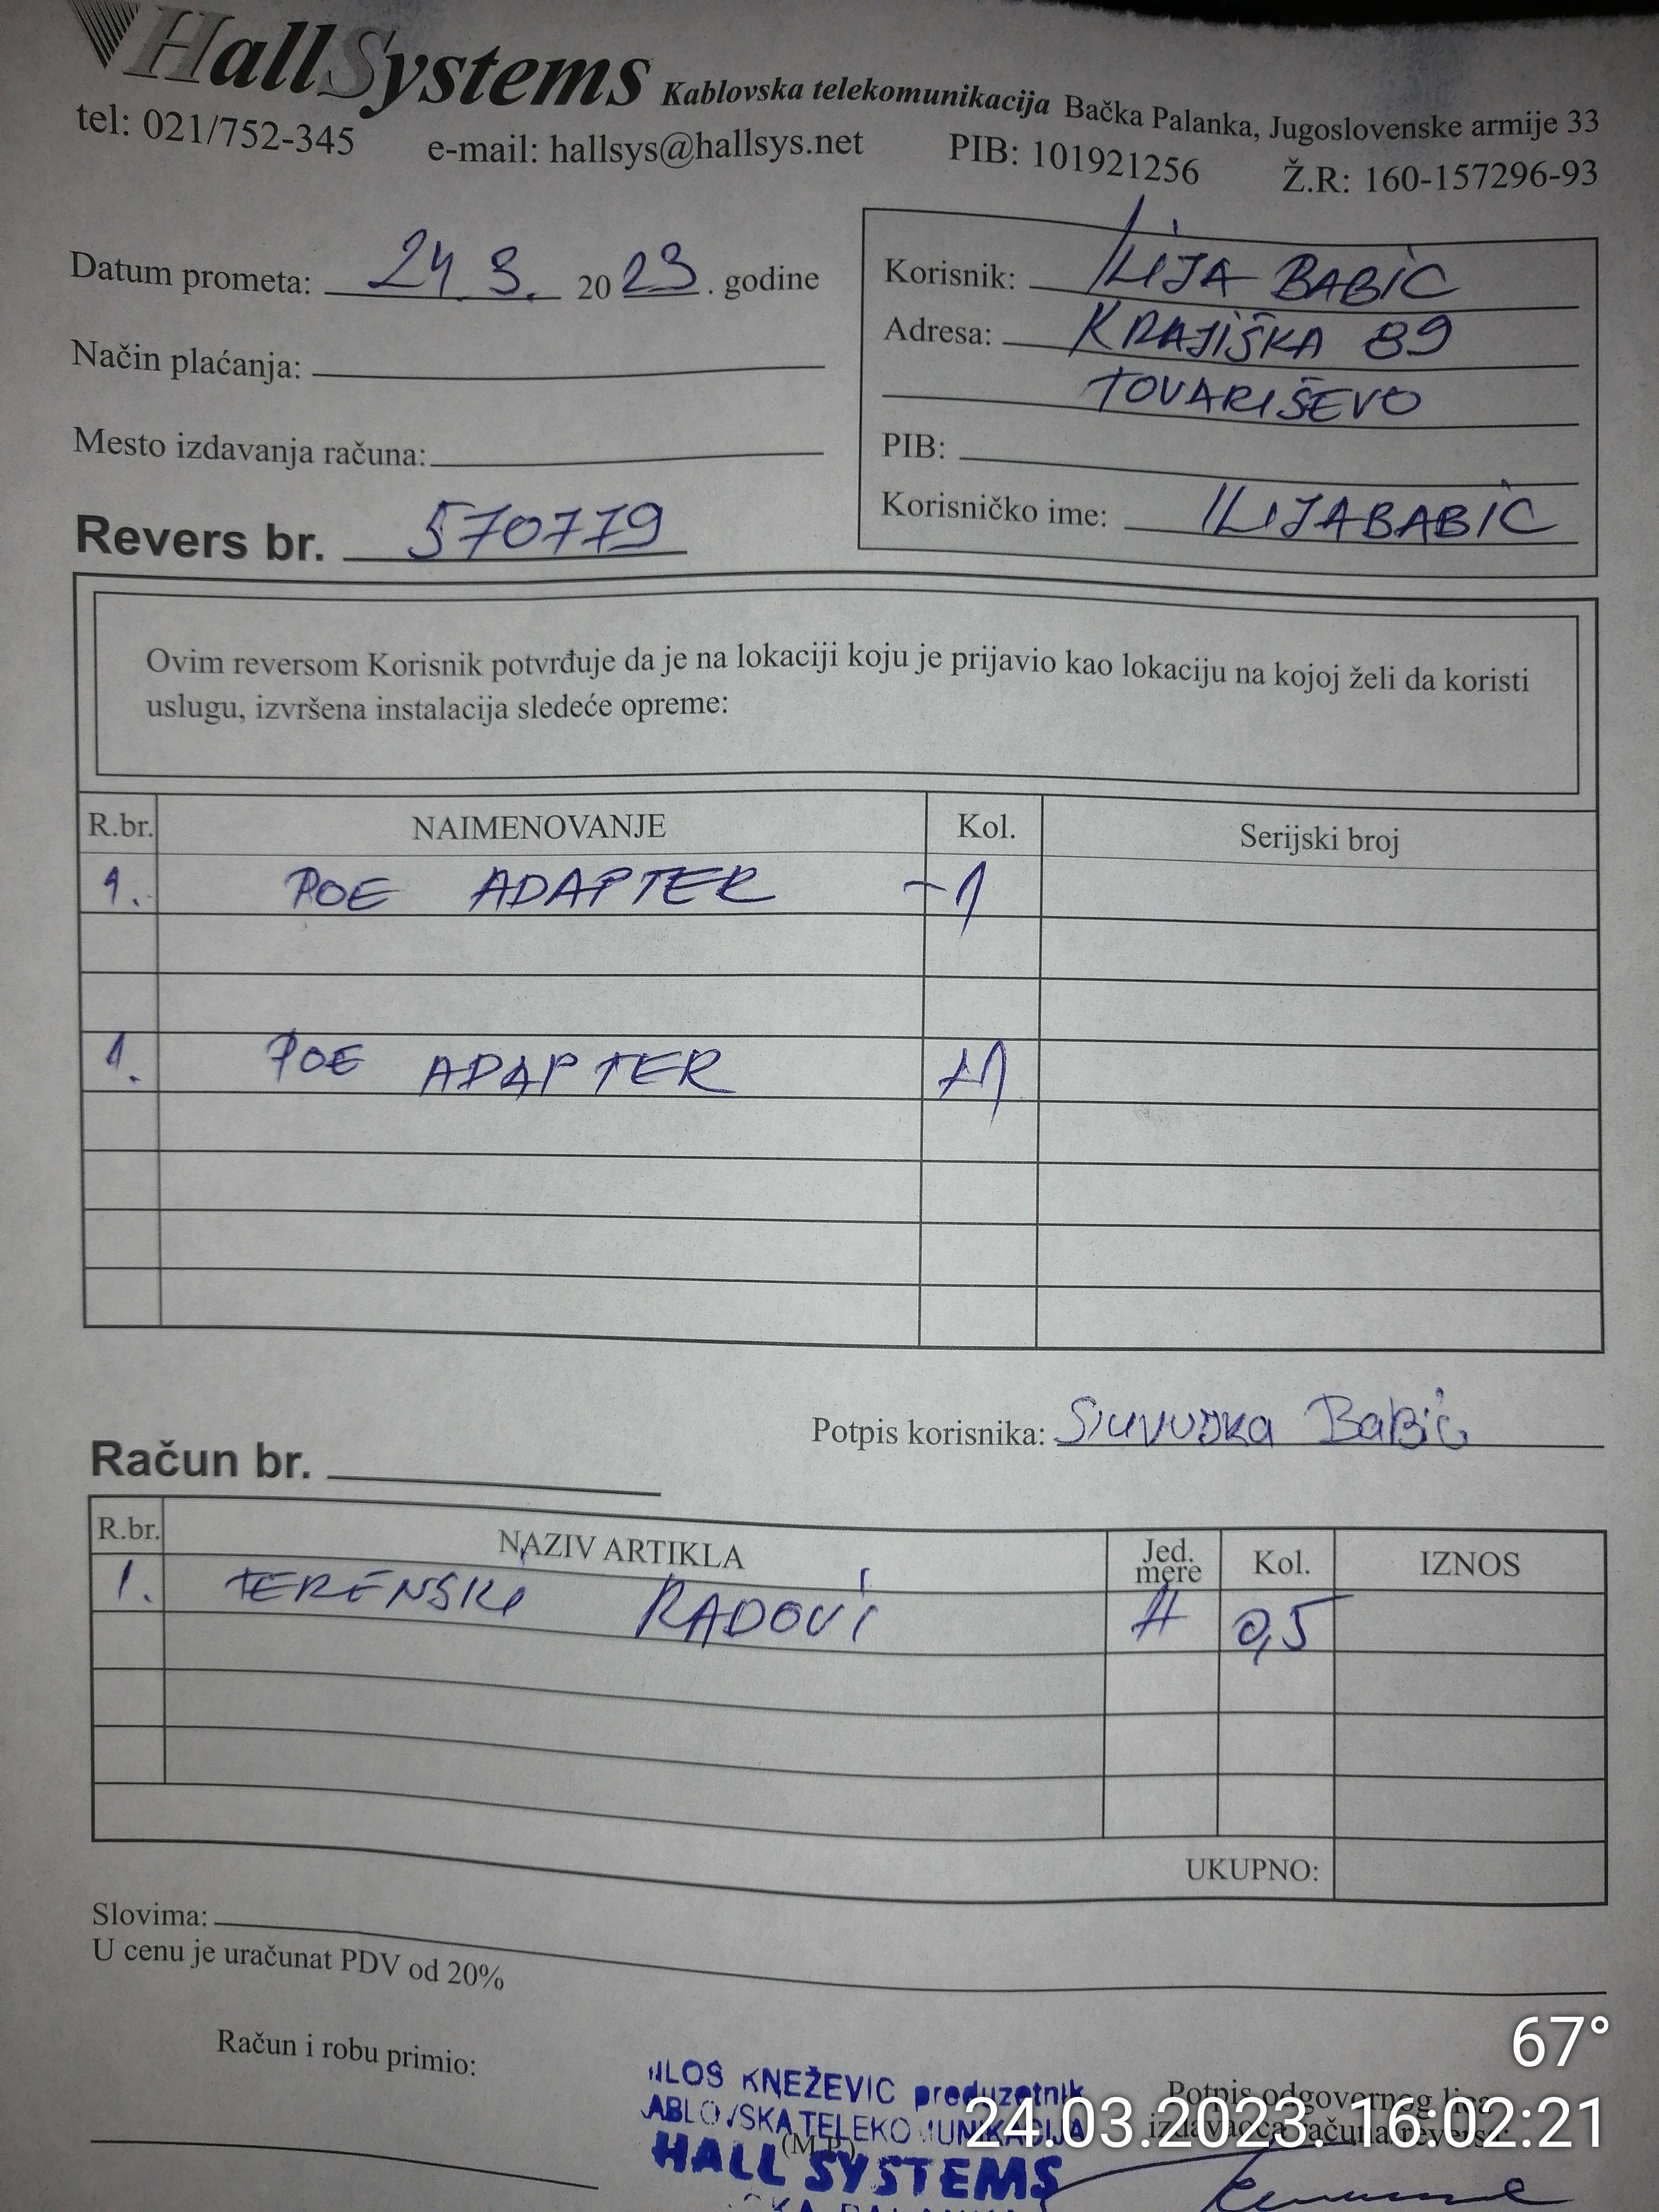 HallSystems Kablovska telekomunikacija Bačka Palanka, Jugoslovenske armije 33
tel: 021/752-345 e-mail: hallsys@hallsys.net PIB: 101921256 Ž.R: 160-157296-93
Datum prometa: 24. 3. 2023. godine
Način plaćanja:
Mesto izdavanja računa:
Revers br. 570779
Korisnik: ILIJA BABIĆ
Adresa: KRAJIŠKA 89
TOVARIŠEVO
PIB:
Korisničko ime: ILIJABABIC
Ovim reversom Korisnik potvrđuje da je na lokaciji koju je prijavio kao lokaciju na kojoj želi da koristi
uslugu, izvršena instalacija sledeće opreme:
R.br. NAIMENOVANJE Kol. Serijski broj
1. POE ADAPTER -1
1. POE ADAPTER +1
Potpis korisnika: Babić
Račun br.
R.br. NAZIV ARTIKLA Jed. mere Kol. IZNOS
1. TERENSKI RADOVI H 0,5
UKUPNO:
Slovima:
U cenu je uračunat PDV od 20%
Račun i robu primio:
KNEŽEVIĆ preduzetnik
TELEKOMUNIKACIJA
(M.P.)
HALL SYSTEMS
Potpis odgovornog lica
izdavaoca računa/reversa:
67°
24.03.2023. 16:02:21